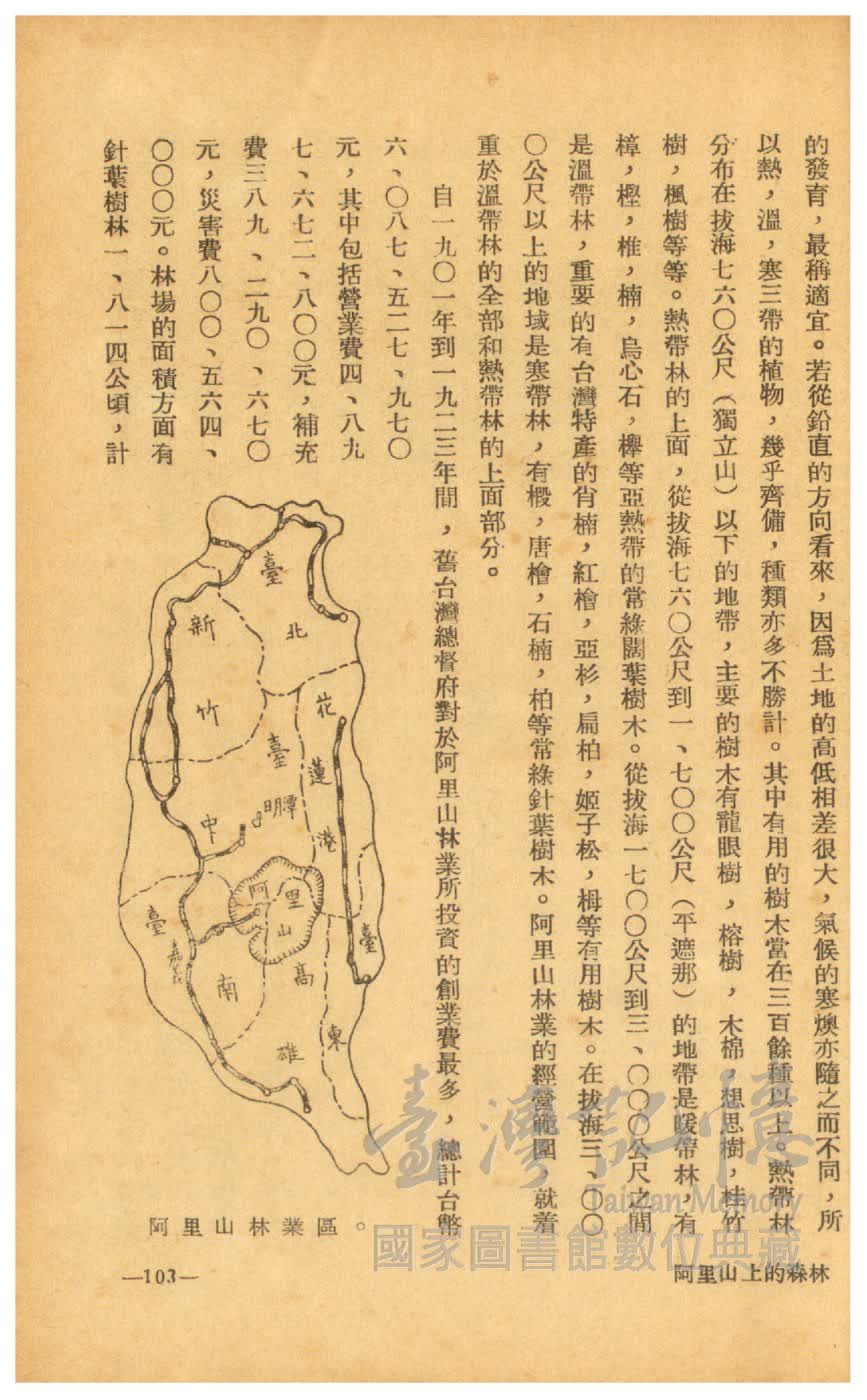 的發育，最稱適宜。若從鉛直的方向看來，因爲土地的高低相差很大，氣候的寒燠亦隨之而不同，所
以熱，溫，寒三帶的植物，幾乎齊備，種類亦多不勝計。其中有用的樹木當在三百餘種以上。熱帶林
分布在拔海七六〇公尺（獨立山）以下的地帶，主要的樹木有龍眼樹，榕樹，木棉，想思樹，桂竹
樹，楓樹等等。熱帶林的上面，從拔海七六〇公尺到一、七〇〇公尺（平遮那）的地帶是暖帶林，有
樟，樫，椎，楠，烏心石，櫸等亞熱帶的常綠闊葉樹木。從拔海一七〇〇公尺到三、〇〇〇公尺之間
是溫帶林，重要的有台灣特產的肖楠，紅檜，亞杉，扁柏，姬子松，栂等有用樹木。在拔海三、〇〇
〇公尺以上的地域是寒帶林，有椴，唐檜，石楠，柏等常綠針葉樹木。阿里山林業的經營範圍，就着
重於溫帶林的全部和熱帶林的上面部分。
自一九〇一年到一九二三年間，舊台灣總督府對於阿里山林業所投資的創業費最多，總計台幣
六、〇八七、五二七、九七〇
元，其中包括營業費四、八九
七、六七二、八〇〇元，補充
費三八九、二九〇、六七〇
元，災害費八〇〇、五六四、
〇〇〇元。林場的面積方面有
針葉樹林一、八一四公頃，計
臺北
新竹
花蓮港
臺中
潭明
阿里山
臺南
嘉義
高雄
臺東
阿里山林業區。
—103—
阿里山上的森林
臺灣記憶
Taiwan Memory
國家圖書館數位典藏